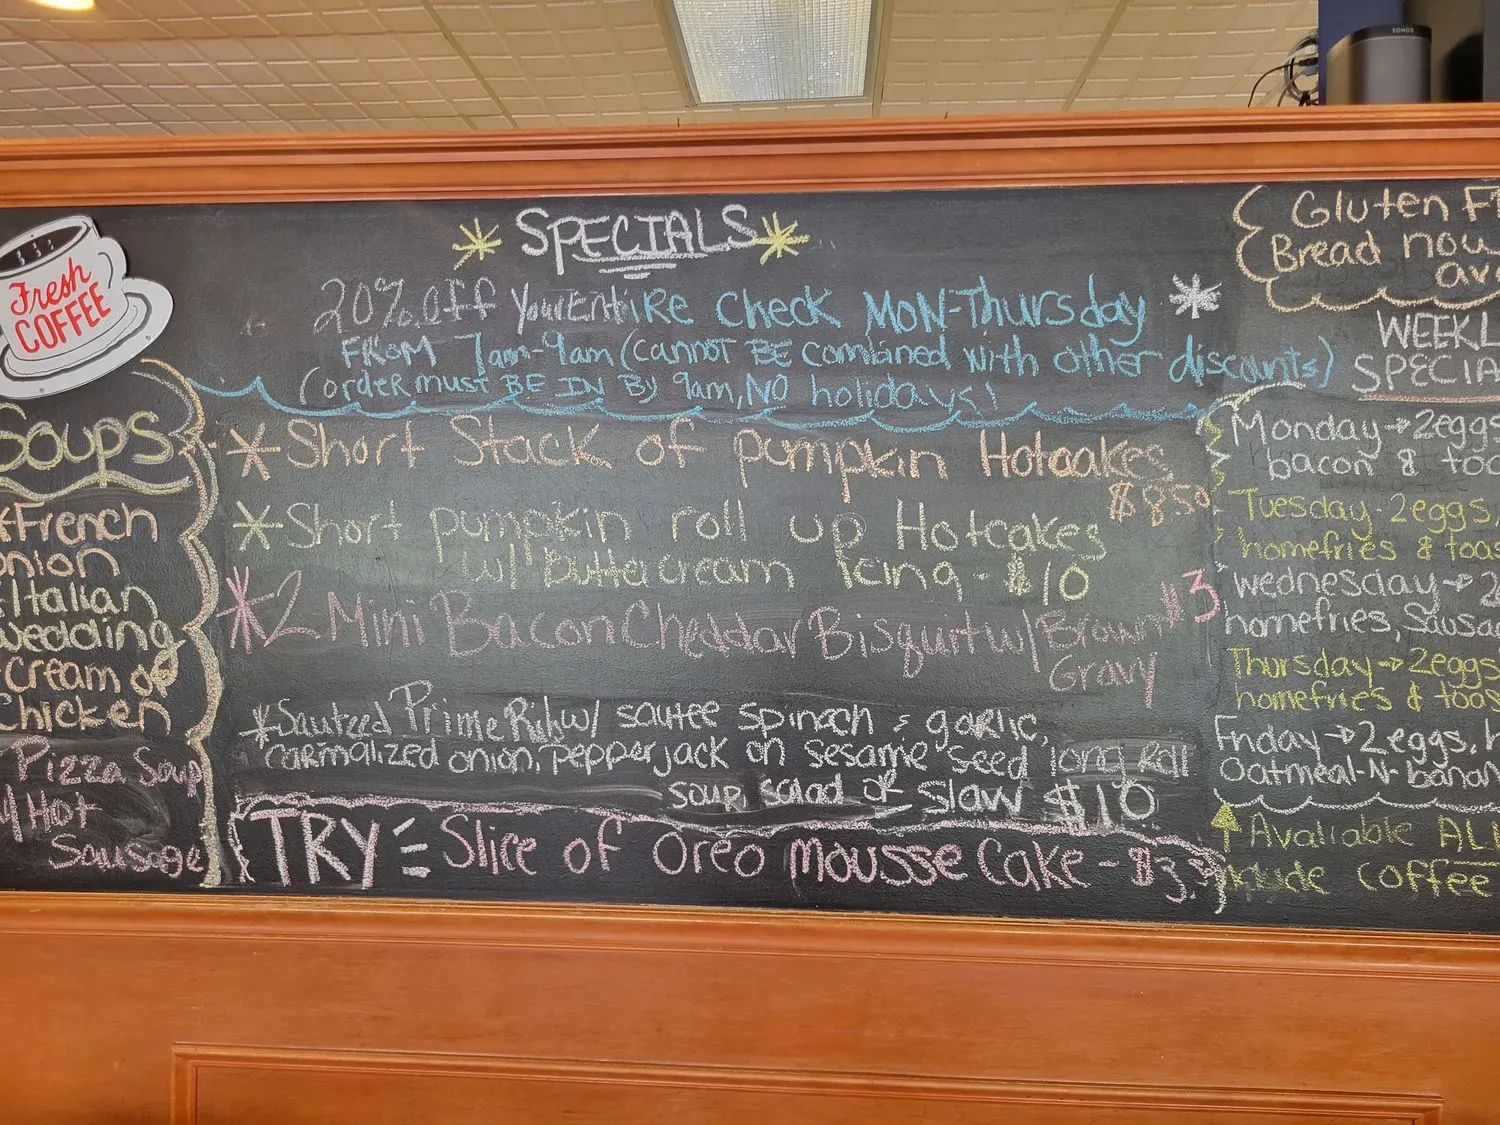 SONOS
Fresh
COFFEE
Soups
*French
onion
*Italian
wedding
cream of
chicken
Pizza Soup
w/ Hot
Sausage
* SPECIALS *
20% off Your ENtiRe check MON-Thursday *
FROM 7am-9am (cannot BE combined with other discounts)
(order must BE IN By 9am, NO holidays!
* Short Stack of pumpkin Hotcakes
$8.50
* Short pumpkin roll up Hotcakes
w/ buttercream Icing - $10
*2 Mini Bacon Cheddar Bisquit w/ Brown $3
Gravy
*Sauteed Prime Rib w/ sautee spinach & garlic,
carmalized onion, pepperjack on sesame seed long Roll
soup, salad or slaw $10
TRY Slice of Oreo mousse Cake - $3.
Gluten F
Bread now
ava
WEEKL
SPECIA
Monday → 2eggs
bacon & toa
Tuesday - 2eggs,
homefries & toas
Wednesday → 2
homefries, Sausa
Thursday → 2eggs
homefries & toas
Friday → 2 eggs, h
Oatmeal-N-banan
Avaliable ALL
include coffee